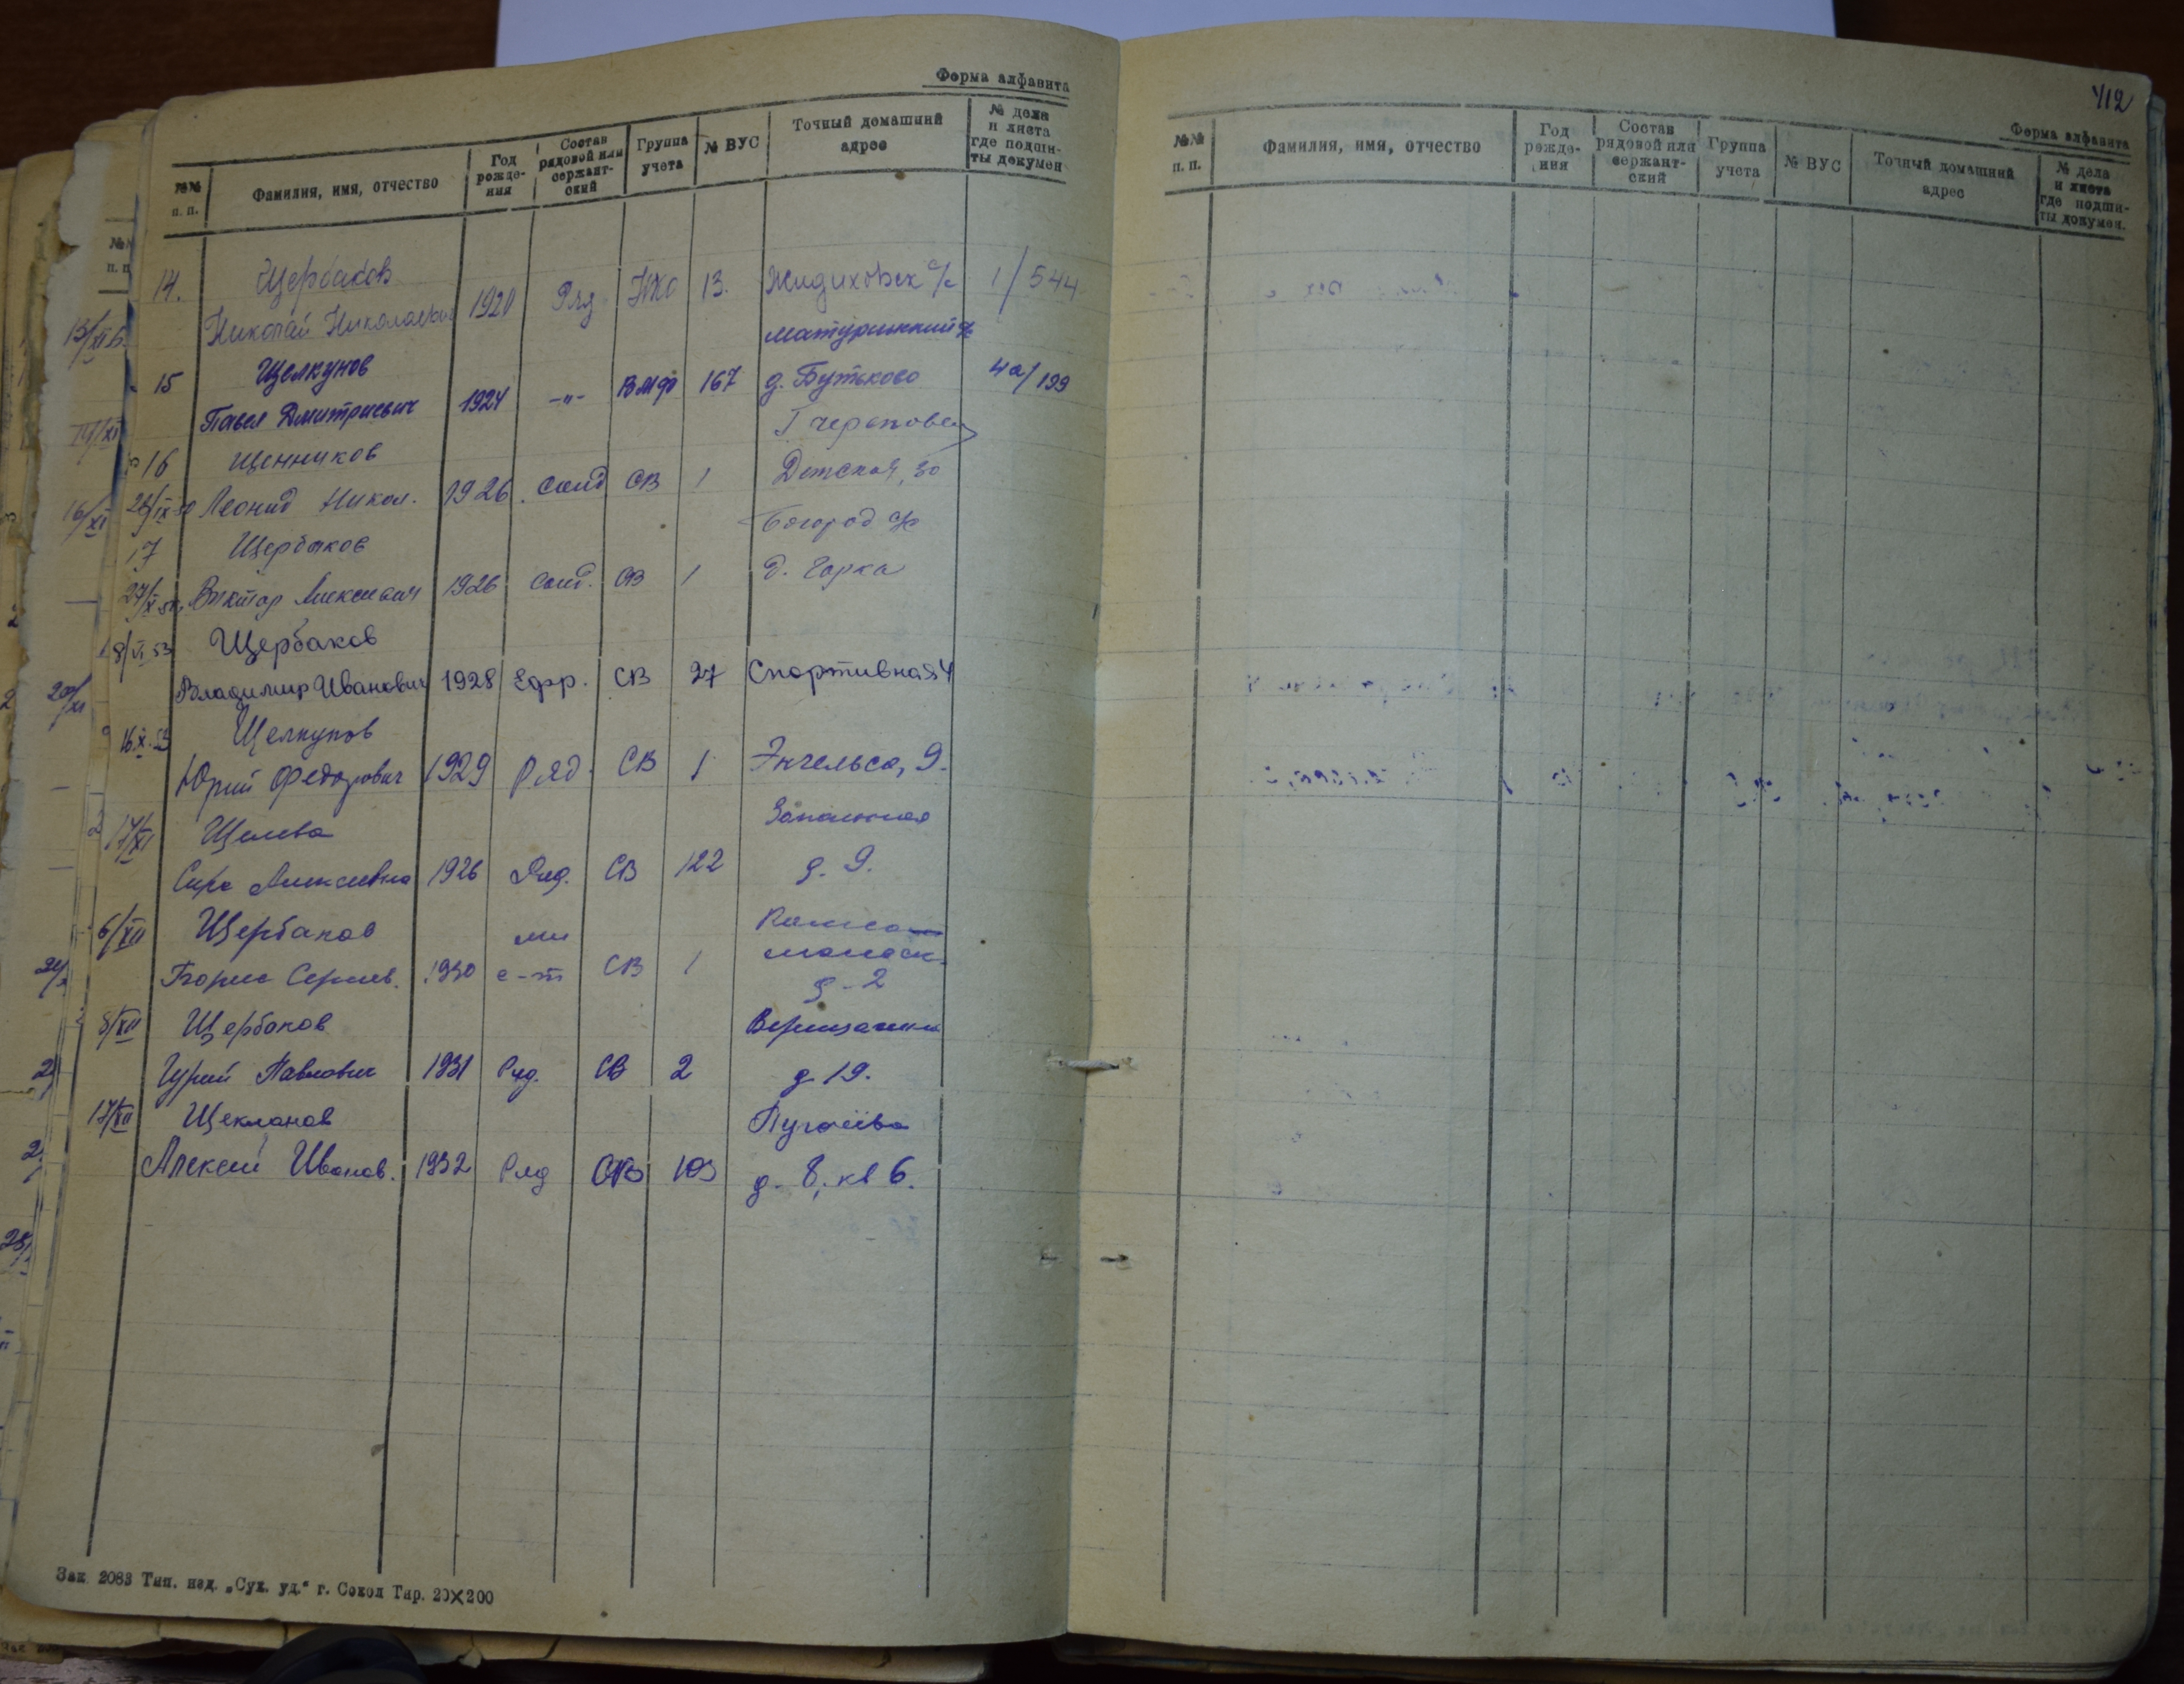 Форма алфавита
№№ п. п.
Фамилия, имя, отчество
Год рожде-ния
Состав рядовой или сержант-ский
Группа учета
№ ВУС
Точный домашний адрес
№ дела и листа где подши-ты докумен
14. Щербаков
Николай Николаевич 1920 Ряд НХО 13. Жидиховск с/с 1/544
Матуринский с/с
15 Щелкунов
Павел Дмитриевич 1924 -"- ВМФ 167 д. Бутьково 4а/199
Г Череповец
16 Щенников
28/IX 50 Леонид Никол. 1926. солд СВ 1 Детская, 30
Богород с/с
17 Щербаков
27/X 50 Виктор Алексеевич 1926 солд. СВ 1 д. Горка
8/VI 53 Щербаков
Владимир Иванович 1928 Ефр. СВ 27 Спортивная 4
16.X.53 Щелкунов
Юрий Федорович 1929 Ряд. СВ 1 Энгельса, 9.
17/XI Щелева
Алексеевна 1926 Ряд. СВ 122 д. 9.
6/XII Щербаков
Борис Сергеев. 1930 мл с-т СВ 1
д-2
8/XII Щербаков
Гурий Павлович 1931 Ряд. СВ 2 д 19.
17/XII Щекланов
Алексей Иванов. 1932 Ряд СВ 103 д. 8, кв 6.
Зак. 2083 Тип. изд. „Сух. уд." г. Сокол Тир. 20×200
412
Форма алфавита
№№ п. п.
Фамилия, имя, отчество
Год рожде-ния
Состав рядовой или сержант-ский
Группа учета
№ ВУС
Точный домашний адрес
№ дела и листа где подши-ты докумен.